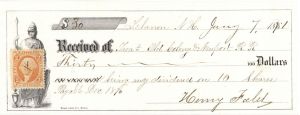 $30 Lebanon N.H. Jany 7, 1871
Received of Old Colony & Newport R. R.
Thirty 100 Dollars
being my dividend on 10 Shares
Payable Dec. 1870
Henry